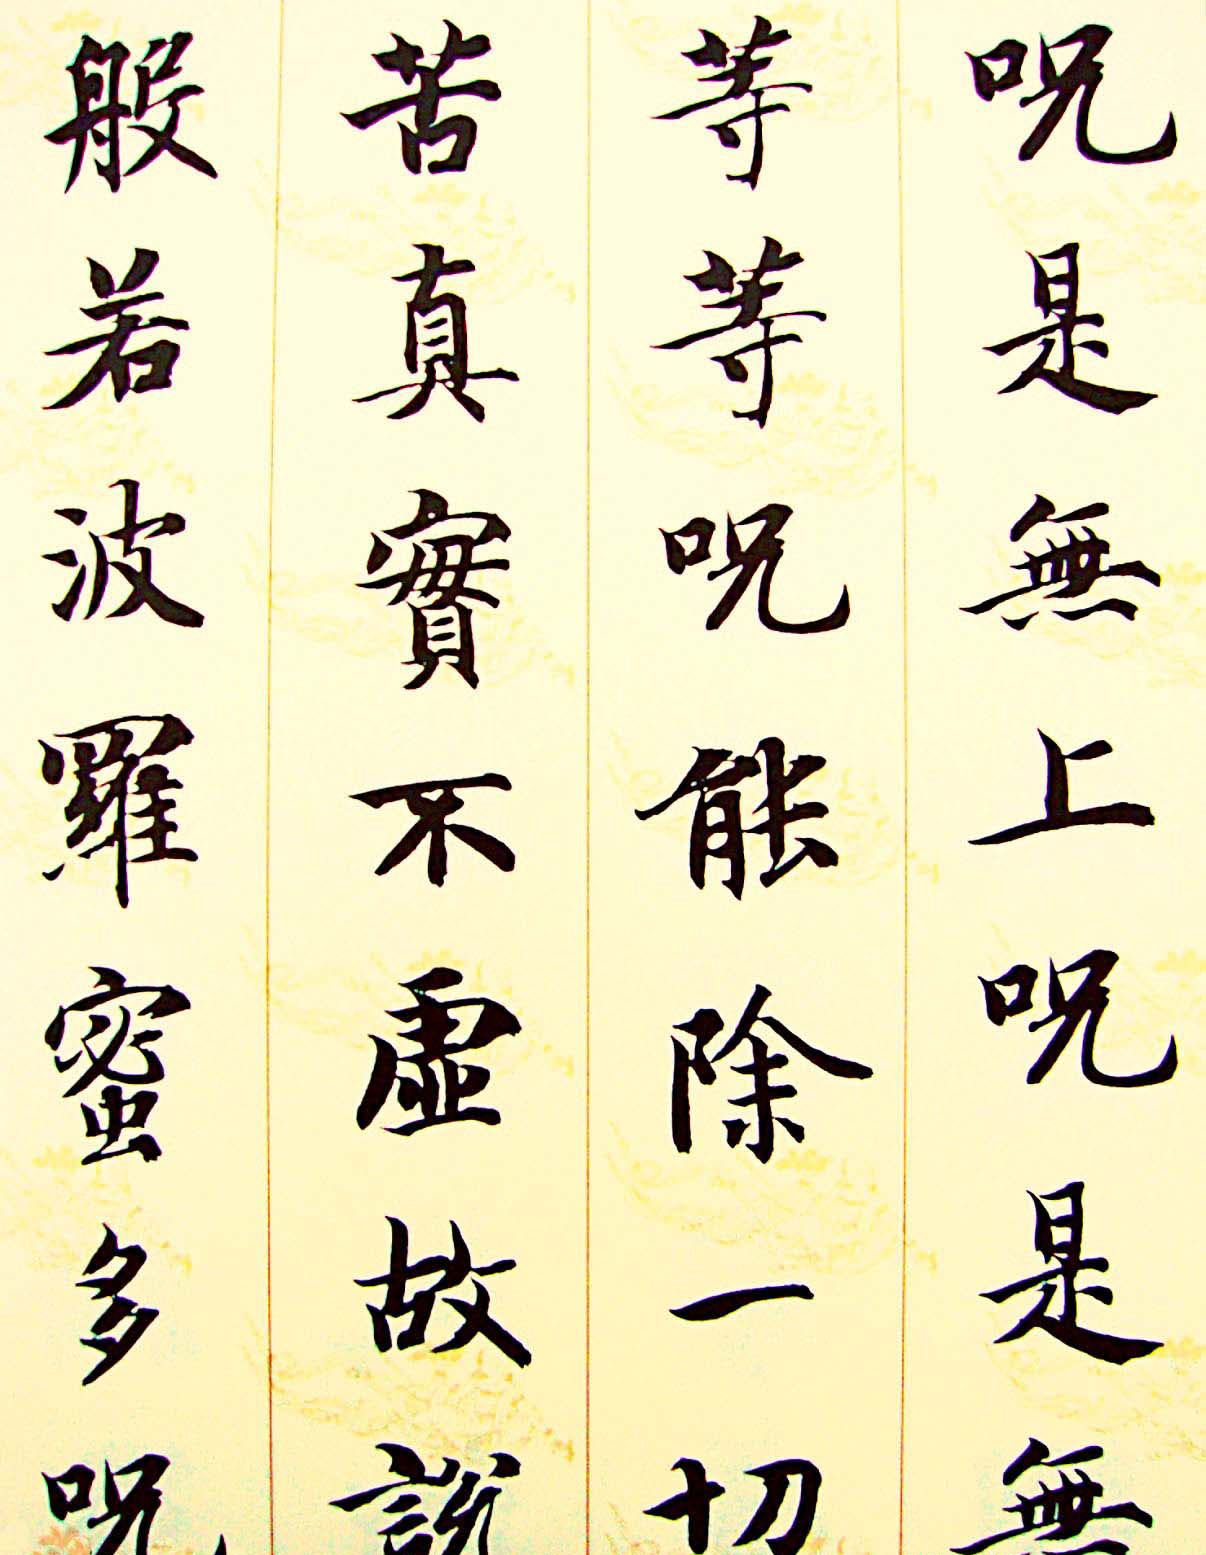 呪是無上呪是無
等等呪能除一切
苦真實不虛故説
般若波羅蜜多呪